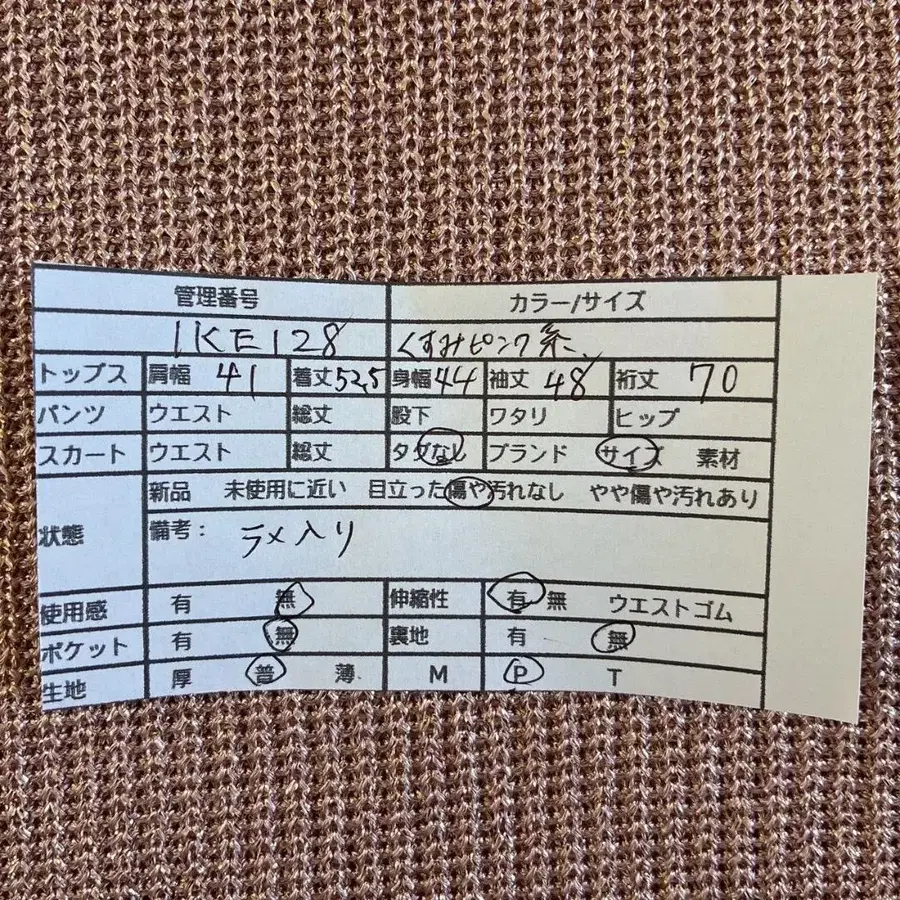 管理番号 カラー/サイズ
IKE128 くすみピンク系
トップス 肩幅 41 着丈 52,5 身幅 44 袖丈 48 裄丈 70
パンツ ウエスト 総丈 股下 ワタリ ヒップ
スカート ウエスト 総丈 タグなし ブランド サイズ 素材
新品 未使用に近い 目立った傷や汚れなし やや傷や汚れあり
状態 備考: ラメ入り
使用感 有 無 伸縮性 有 無 ウエストゴム
ポケット 有 無 裏地 有 無
生地 厚 普 薄 M P T